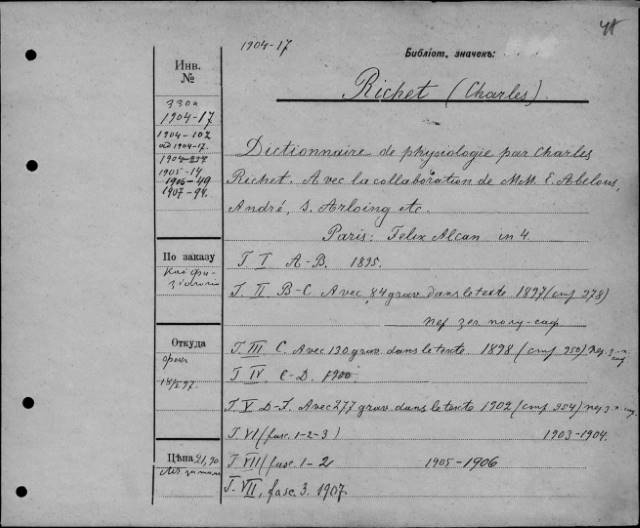 48
1904-17
Библіот. значекъ:
Инв.
№
Richet (Charles).
330a
1904-17
1904-107
1904-17.
1904-257
1905-14
1906-49
1907-94.
Dictionnaire de physiologie par Charles
Richet. Avec la collaboration de MM. E. Abelous,
André, S. Arloing etc.
Paris: Felix Alcan in 4.
По заказу
T I A-B. 1895.
T. II B-C Avec 84 grav. dans le texte 1897 (стр 978)
пер зел полу-саф
Откуда
T. III C. Avec 130 grav. dans le texte 1898 (стр 950)
T IV. C-D. 1900
T. V D-F. Avec 277 grav. dans le texte 1902 (стр 954)
T. VI (fasc. 1-2-3) 1903-1904.
Цѣна 21,90
T. VII (fasc. 1-2 1905-1906
T. VII, fasc. 3. 1907.